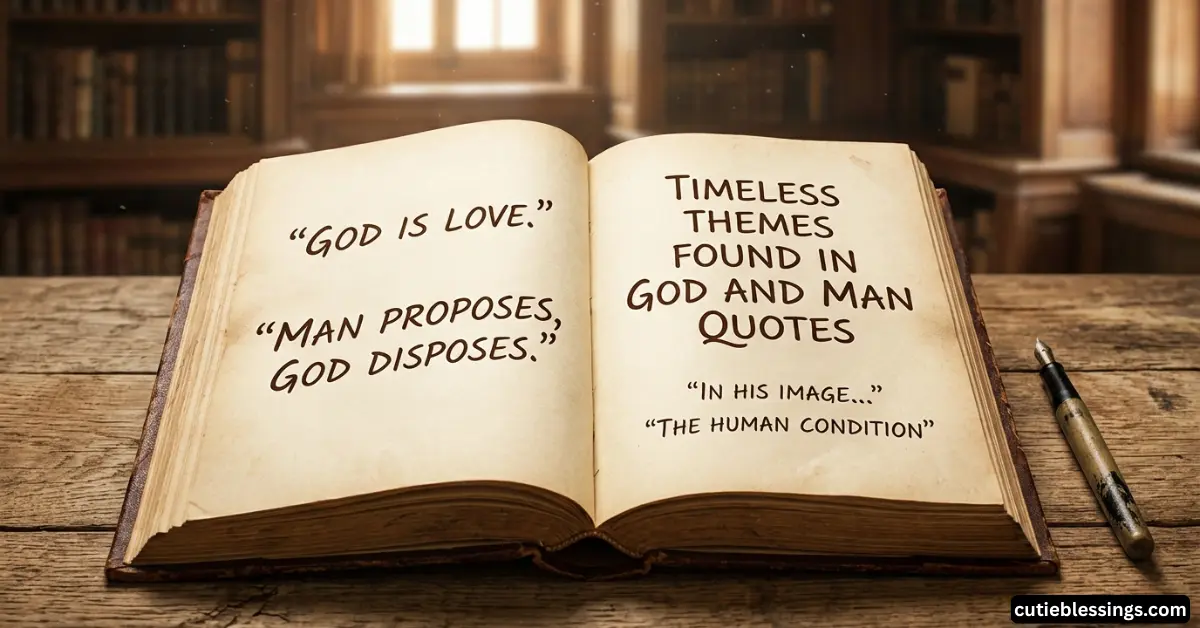 “GOD IS LOVE.”
“MAN PROPOSES,
GOD DISPOSES.”
TIMELESS
THEMES
FOUND IN
GOD AND MAN
QUOTES
“IN HIS IMAGE...”
“THE HUMAN CONDITION”
cutieblessings.com